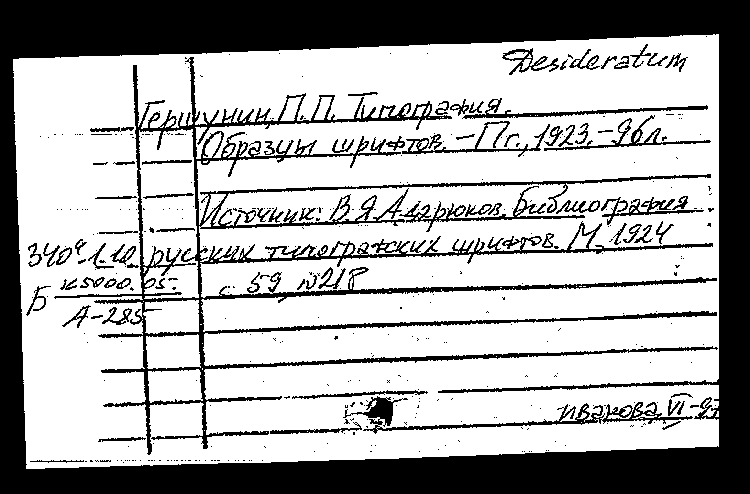 Desideratum
Гершунин, П.П. Типография.
Образцы шрифтов. – Пг., 1923. – 96л.
Источник: В.Я. Адарюков. Библиография
русских типографских шрифтов. М., 1924
с. 59, №218
Б К5000.05.
А-285
VI-97